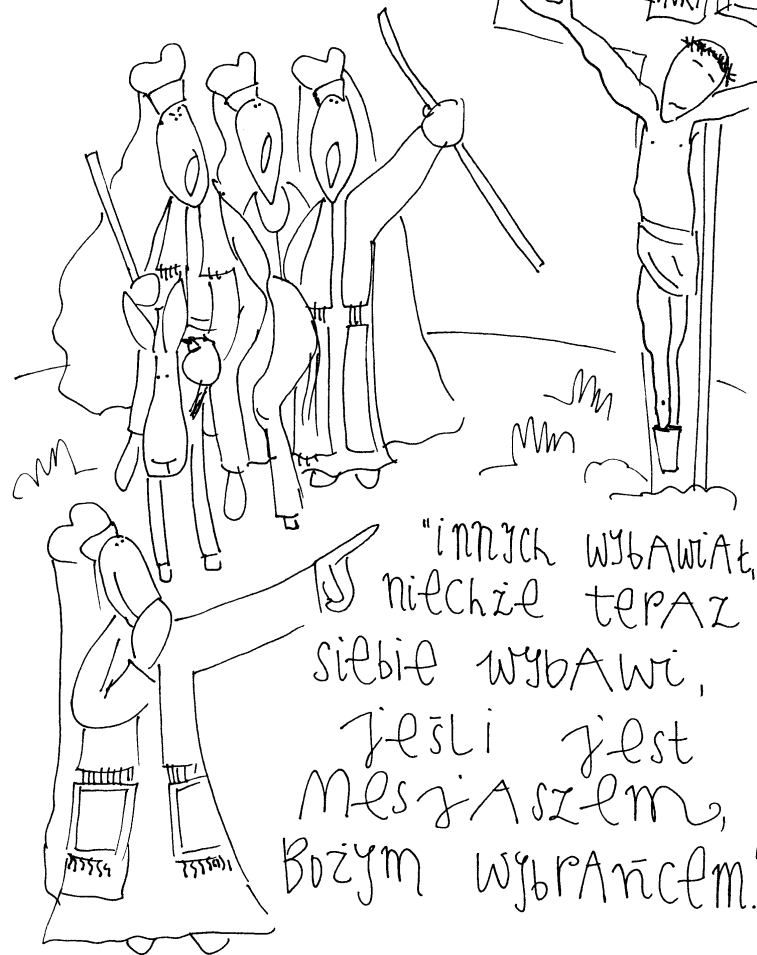 "innych wybAwiAł,
niechże terAz
siebie wybAwi,
jeśLi jest
MesjAszem,
Bożym wybrAńcem."